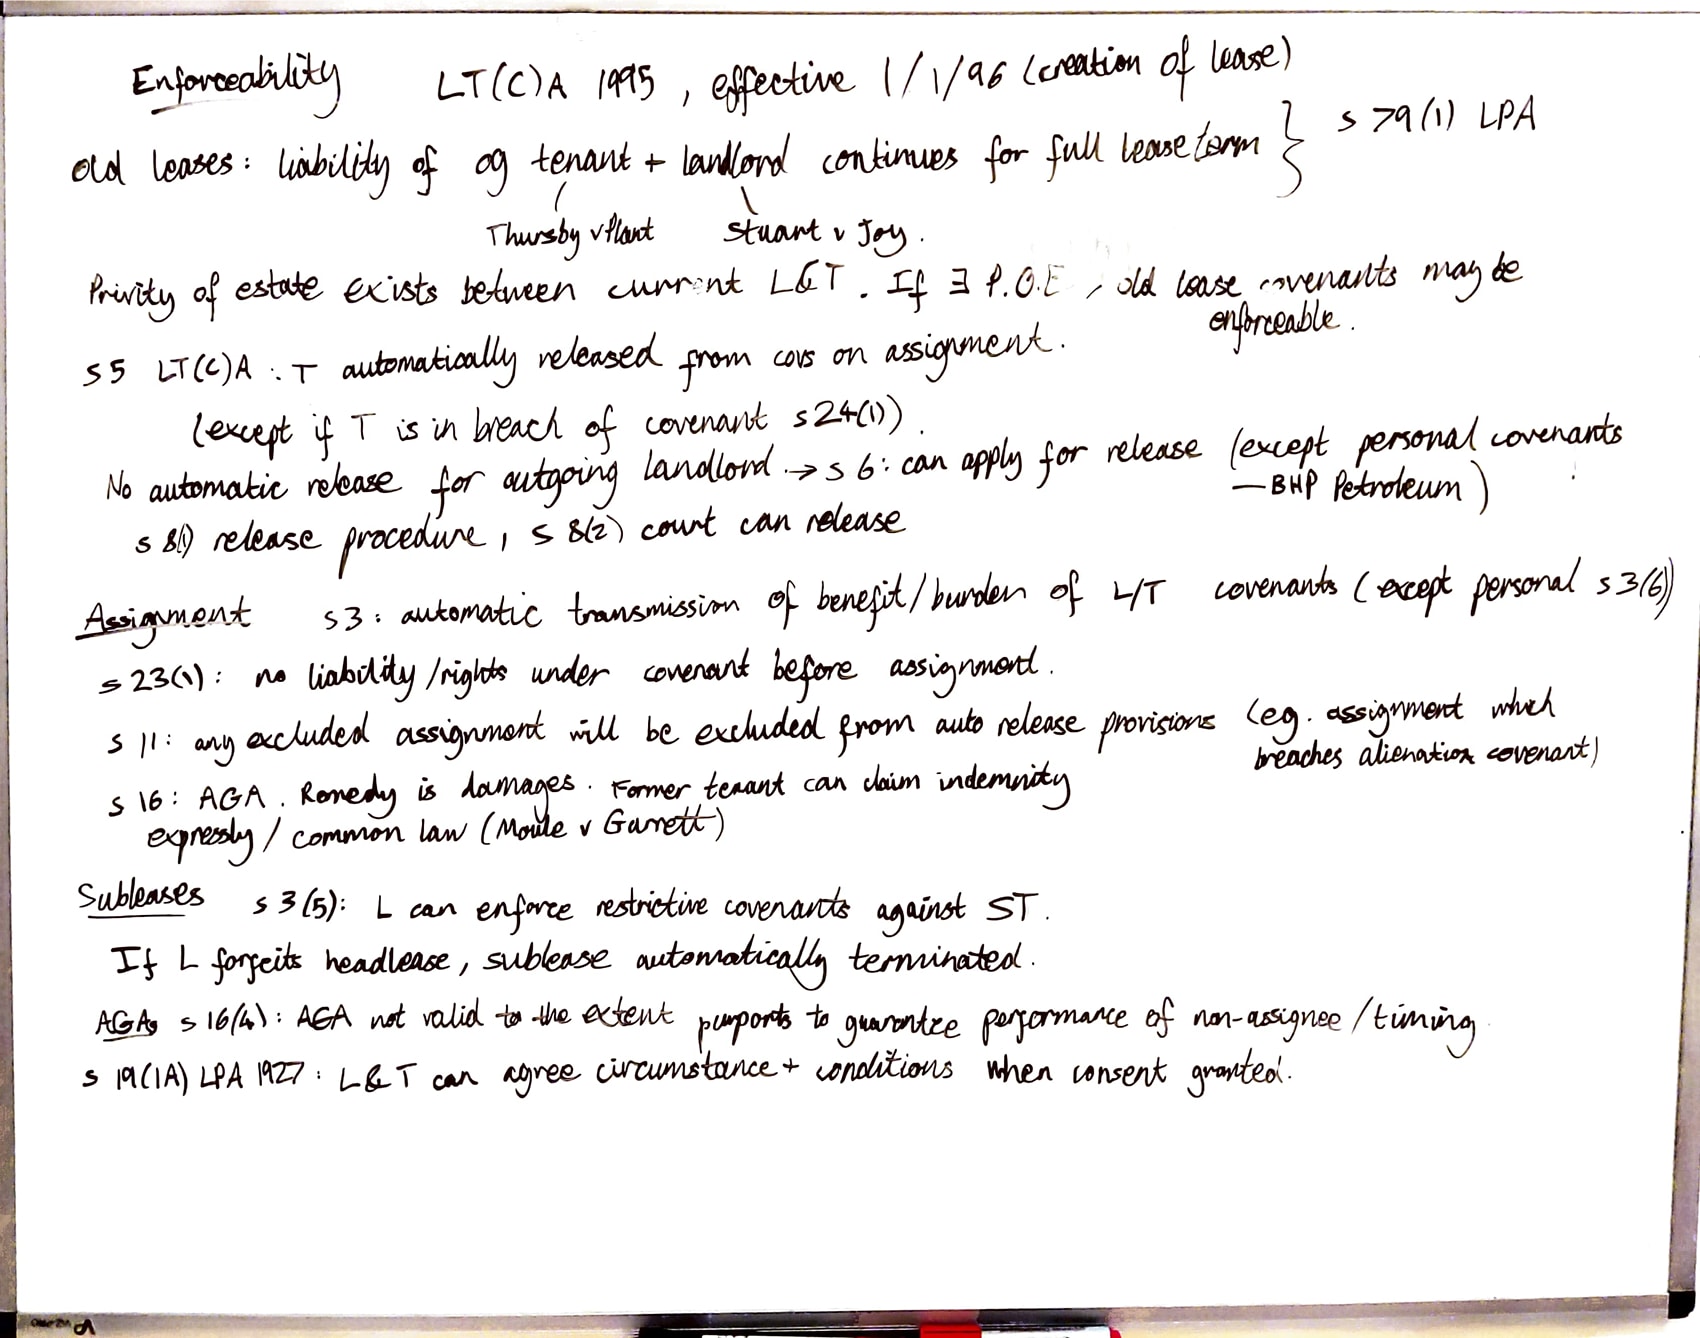 Enforceability LT(C)A 1995, effective 1/1/96 (creation of lease)
old leases: liability of og tenant + landlord continues for full lease term } s 79(1) LPA
Thursby v Plant Stuart v Joy.
Privity of estate exists between current L&T. If ∃ P.O.E, old lease covenants may be
enforceable.
s5 LT(C)A: T automatically released from covs on assignment.
(except if T is in breach of covenant s24(1)).
No automatic release for outgoing landlord. → s 6: can apply for release (except personal covenants
— BHP Petroleum)
s 8(1) release procedure, s 8(2) court can release
Assignment s3: automatic transmission of benefit/burden of L/T covenants (except personal s3(6))
s23(1): no liability/rights under covenant before assignment.
s 11: any excluded assignment will be excluded from auto release provisions (eg. assignment which
breaches alienation covenant)
s 16: AGA. Remedy is damages. Former tenant can claim indemnity
expressly / common law (Moule v Garrett)
Subleases s 3(5): L can enforce restrictive covenants against ST.
If L forfeits headlease, sublease automatically terminated.
AGAs s 16(4): AGA not valid to the extent purports to guarantee performance of non-assignee/timing
s 19(1A) LPA 1927: L&T can agree circumstance + conditions when consent granted.